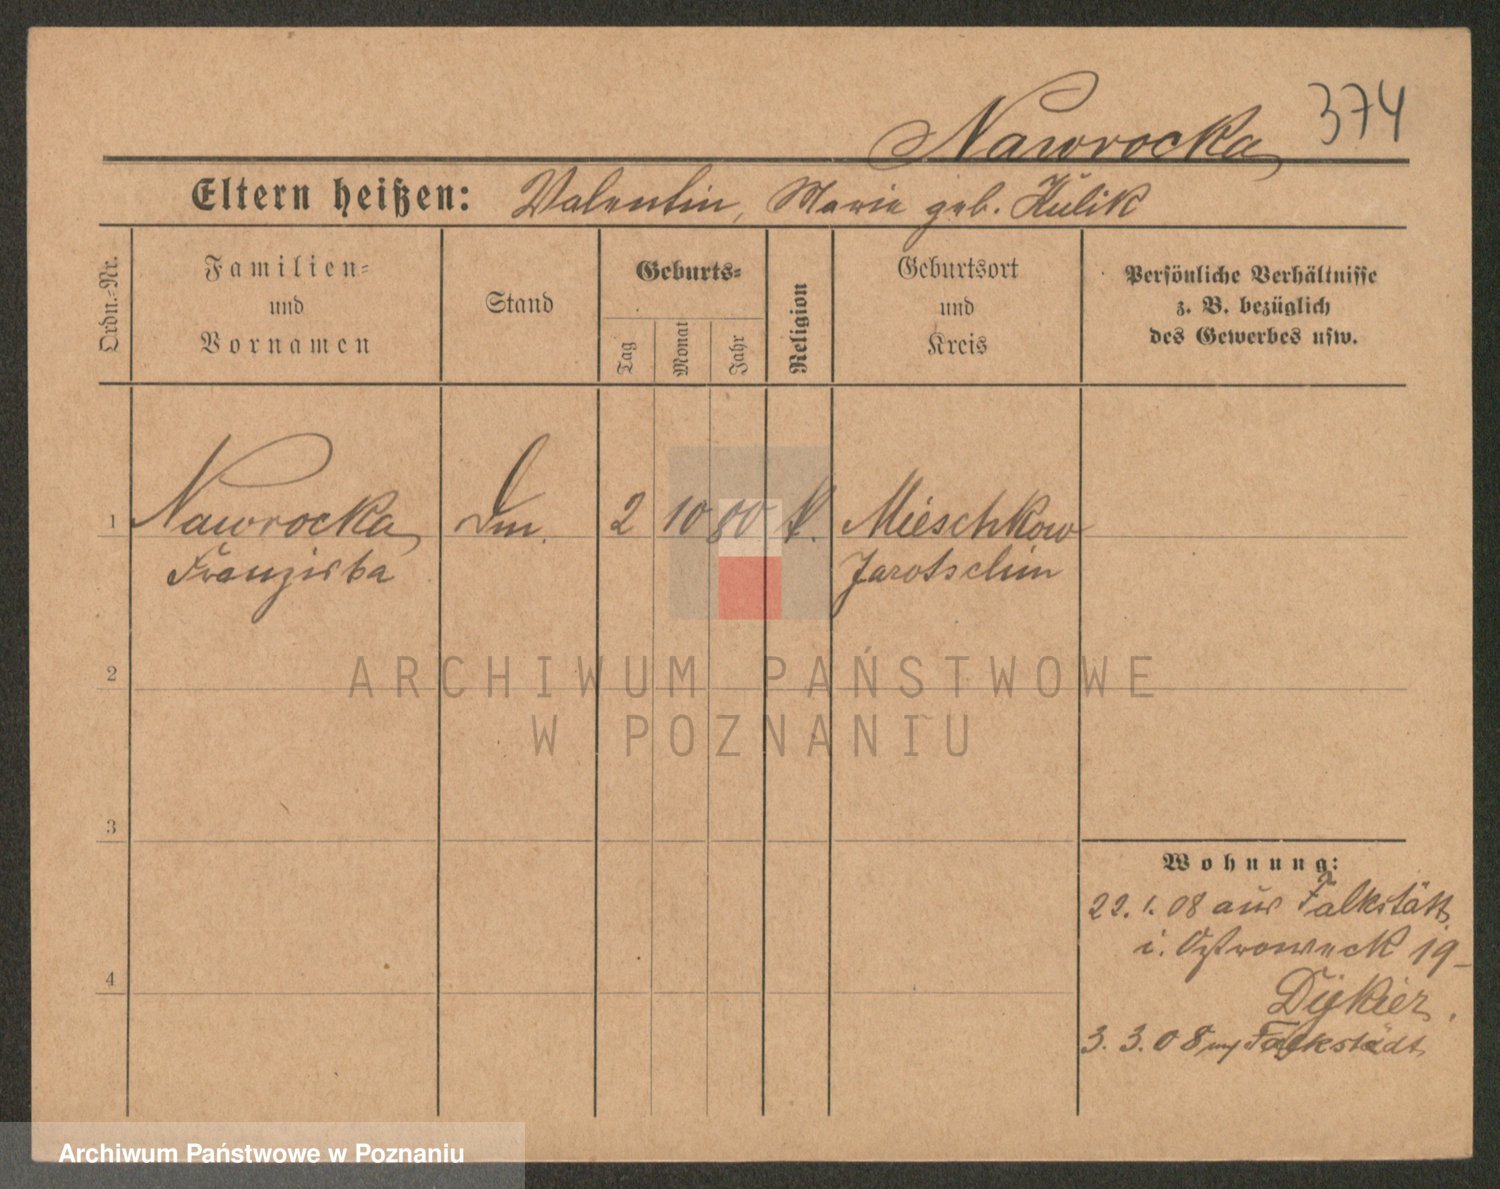 Nawrocka 374
Eltern heißen: Valentin, Marie geb. Kulik
Ordn.-Nr.
Familien-
und
Vornamen
Stand
Geburts-
Tag
Monat
Jahr
Religion
Geburtsort
und
Kreis
Persönliche Verhältnisse
z. B. bezüglich
des Gewerbes usw.
1 Nawrocka Dm. 2 10 80 k. Mieschkow
Franziska Jarotschin
2
3
4
Wohnung:
22.1.08 aus Falkstätt
i. Ostroweck 19-
Dykier.
3.3.08 Falkstädt
ARCHIWUM PAŃSTWOWE
W POZNANIU
Archiwum Państwowe w Poznaniu